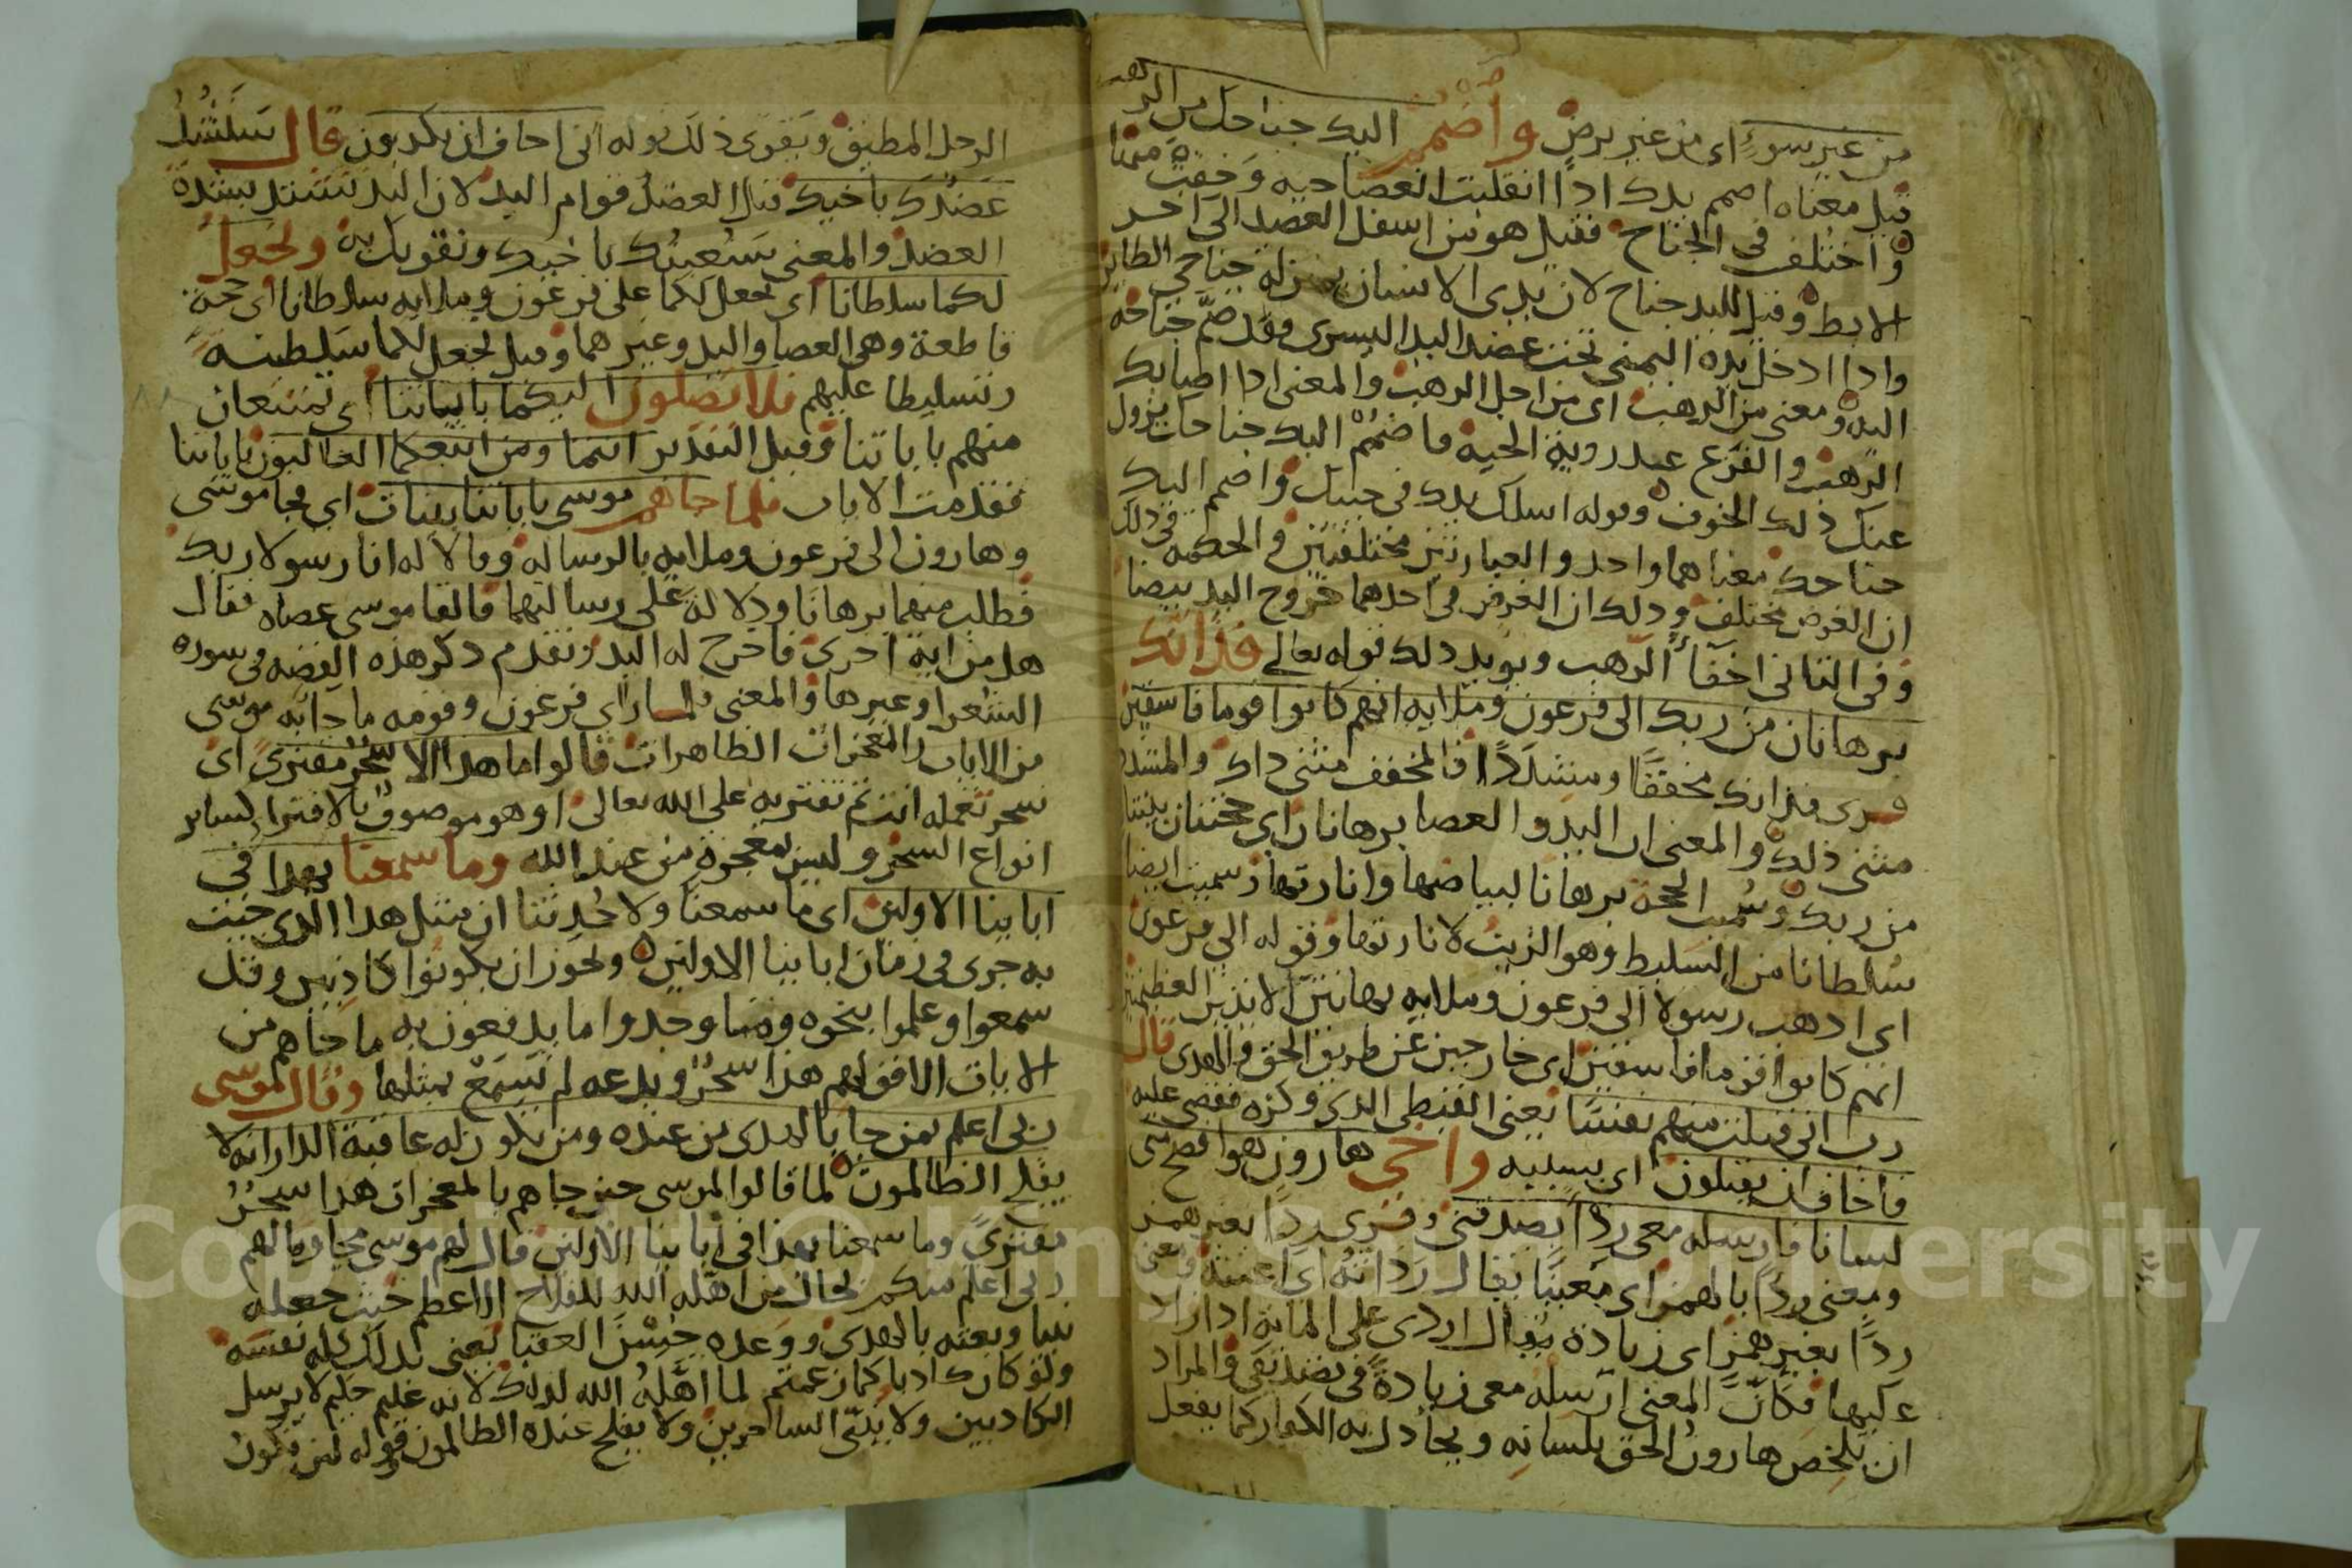 من غير سوء اى من غير برص واضمم اليك جناحك من الرهب
قيل معناه اضمم يدك اذا انقلبت العصا حيه وخفت منها
واختلف فى الجناح فقيل هو من اسفل العضد الى احد
الابط وقيل لليد جناح لان يدى الانسان بمنزله جناحى الطاير
واذا ادخل يده اليمنى تحت عضد اليد اليسرى فقد ضمّ جناحه
اليه ومعنى من الرهب اى من اجل الرهب والمعنى اذا اصابك
الرهب والفزع عند روية الحيه فاضمم اليك جناحك يزول
عنك ذلك الخوف وقوله اسلك يدك فى جيبك واضمم اليك
جناحك معناهما واحد والعبارتين مختلفتين والحكمه فى ذلك
ان الغرض مختلف وذلك ان الغرض فى احدهما خروج اليد بيضا
وفى الثانى اخفا الرهب ويويد ذلك قوله تعالى فذانك
برهانان من ربك الى فرعون وملايه انهم كانوا قوما فاسقين
قرى فذانك مخففًا ومشددًا فالمخفف مثنى ذاك والمشدد
مثنى ذلك والمعنى ان اليد والعصا برهانان اى حجتان بينتا
من ربك وسُميت الحجه برهانا لبياضها وانارتها وسميت ايضا
سلطانا من السليط وهو الزيت لانارتها وقوله الى فرعون
اى اذهب رسولا الى فرعون وملايه بهاتين الايتين العظيمتين
انهم كانوا قوما فاسقين اى خارجين عن طريق الحق والهدى قال
رب انى قتلت منهم نفسًا يعنى القبطى الذى وكزه فقضى عليه
فاخاف ان يقتلون اى بسببه واخى هارون هو افصح منى
لسانا فارسله معى ردءًا يصدقنى وقرى ردًا بغير همز
ومعنى ردءًا بالهمز اى معينًا يقال رداته اى اعنته ومعنى
ردًا بغير همز اى زيادة يقال اردى على المايه اذا زاد
عليها فكانّ المعنى ارسله معى زيادةً فى تصديقى والمراد
ان يلخص هارونُ الحق بلسانه ويجادل به الكفار كما يفعل
الرجل المطيق ويقوى ذلك قوله انى اخاف ان يكذبون قال سَنَشُدُّ
عضدك باخيك قيل العضد قوام اليد لان اليد تشتد بشدة
العضد والمعنى سنعينك باخيك ونقويك به ونجعل
لكما سلطانا اى نجعل لكما على فرعون وملايه سلطانا اى حجة
قاطعة وهى العصا واليد وغيرهما وقيل نجعل لكما سلطنه
وتسليطا عليهم فلا يصلون اليكما باياتنا اى تمتنعان
منهم باياتنا وقيل التقدير انتما ومن اتبعكما الغالبون باياتنا
فقدمت الايات فلما جاهم موسى باياتنا بينات اى فجا موسى
وهارون الى فرعون وملايه بالرساله وقالا له انا رسولا ربك
فطلب منهما برهانا ودلالة على رسالتهما فالقا موسى عصاه فقال
هل من اية اخرى فاخرج له اليد وتقدم ذكر هذه القصه فى سورة
الشعرا وغيرها والمعنى فلما راى فرعون وقومه ما جا به موسى
من الايات والمعجزات الظاهرات قالوا ما هذا الا سحرٌ مفترى اى
سحر تعمله انت ثم تفتريه على الله تعالى او هو موصوف بالافترا كساير
انواع السحر وليس بمعجزه من عند الله وما سمعنا بهذا فى
اباينا الاولين اى ما سمعنا ولا حُدثنا ان مثل هذا الذى جيت
به جرى فى زمان اباينا الاولين ويجوز ان يكونوا كاذبين وقد
سمعوا وعلموا بنحوه وما وجدوا ما يدفعون به ما جاهم من
الايات الا قولهم هذا سحرٌ وبدعه لم نسمع بمثلها وقال موسى
ربى اعلم بمن جا بالهدى من عنده ومن يكون له عاقبة الدار انه لا
يفلح الظالمون لما قالوا لموسى حين جاهم بالمعجزات هذا سحرٌ
مفترىً وما سمعنا بهذا فى اباينا الاولين قال لهم موسى مجاوبا لهم
ربى اعلم منكم بحال من اهّله الله للفلاح الاعظم حيث جعله
نبيا وبعثه بالهدى ووعده حُسْنَ العقبا يعنى بذلك كله نفسه
ولو كان كاذبا كما زعمتم لما اهّلهُ الله لذلك لانه عليم حكيم لا يرسل
الكاذبين ولا ينبّى الساحرين ولا يفلح عنده الظالمون قوله من تكون